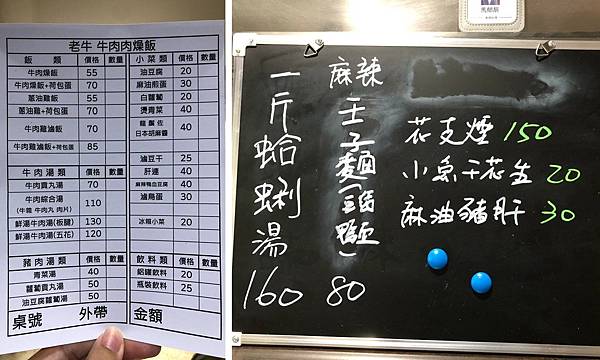 老牛 牛肉肉燥飯
飯 類 價格 數量 小菜類 價格 數量
牛肉燥飯 55 油豆腐 20
牛肉燥飯+荷包蛋 70 麻油煎蛋 30
蔥油雞飯 55 白蘿蔔 20
蔥油雞飯+荷包蛋 70 燙青菜 40
牛肉雞滷飯 70 龍鬚佐日本胡麻醬 40
牛肉雞滷飯+荷包蛋 85
滷豆干 25
牛肉湯類 價格 數量 肝連 40
牛肉貢丸湯 70 麻辣鴨血豆腐 40
牛肉綜合湯 110 滷鳥蛋 30
(牛雜 牛肉丸 肉片)
鮮湯牛肉湯(板腱) 130 冰箱小菜 20
鮮湯牛肉湯(五花) 120
豬肉湯類 價格 數量 飲料類 價格 數量
青菜湯 40 鋁罐飲料 20
蘿蔔貢丸湯 50 瓶裝飲料 25
油豆腐蘿蔔湯 50
桌號 外帶 金額
一斤蛤蜊湯 160
麻辣王子麵(雞鴨血) 80
花支煙 150
小魚干花生 20
麻油豬肝 30